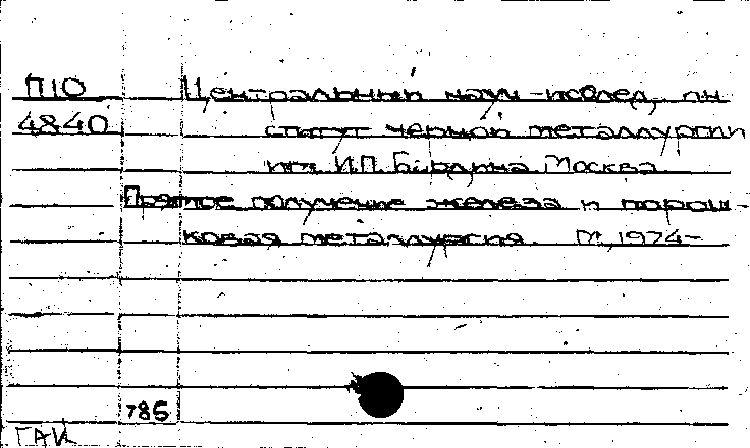 П10 Центральный науч-исслед. ин
4840 ститут черной металлургии
им. И.П. Бардина, Москва
Прямое получение железа и порош-
ковая металлургия. М., 1974-
785
ГАК